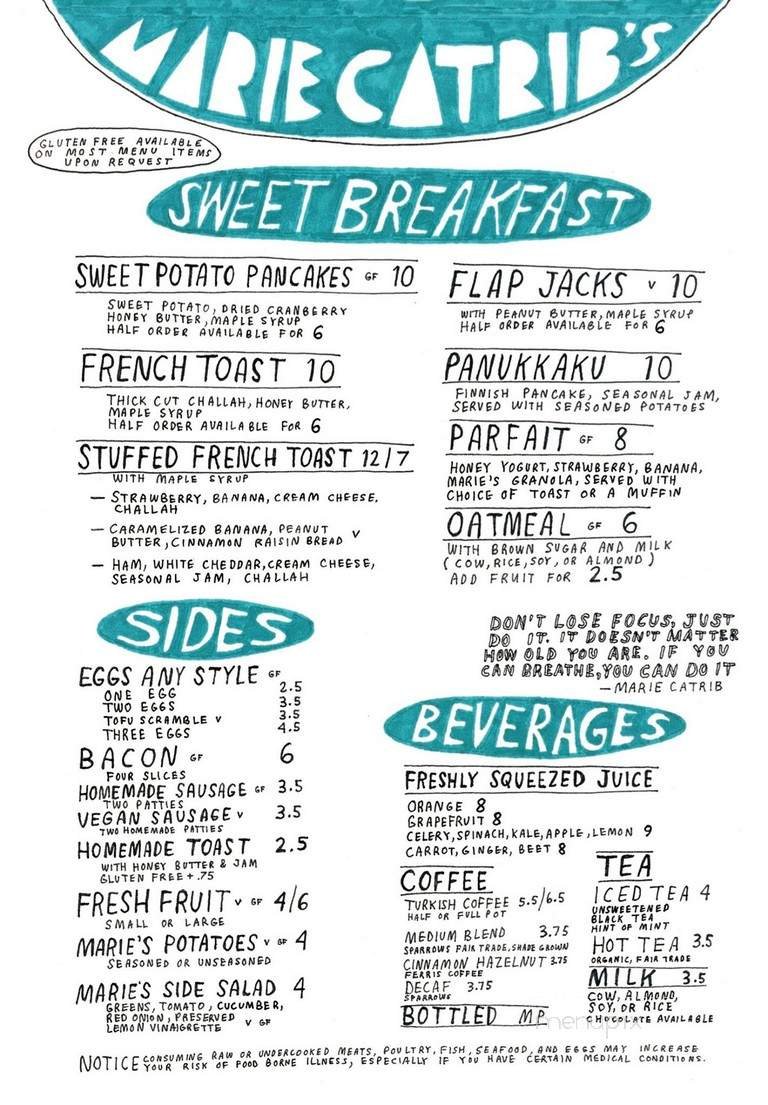 MARIE CATRIB'S
GLUTEN FREE AVAILABLE
ON MOST MENU ITEMS
UPON REQUEST
SWEET BREAKFAST
SWEET POTATO PANCAKES GF 10
SWEET POTATO, DRIED CRANBERRY
HONEY BUTTER, MAPLE SYRUP
HALF ORDER AVAILABLE FOR 6
FRENCH TOAST 10
THICK CUT CHALLAH, HONEY BUTTER,
MAPLE SYRUP
HALF ORDER AVAILABLE FOR 6
STUFFED FRENCH TOAST 12/7
WITH MAPLE SYRUP
— STRAWBERRY, BANANA, CREAM CHEESE,
CHALLAH
— CARAMELIZED BANANA, PEANUT
BUTTER, CINNAMON RAISIN BREAD V
— HAM, WHITE CHEDDAR, CREAM CHEESE,
SEASONAL JAM, CHALLAH
FLAP JACKS V 10
WITH PEANUT BUTTER, MAPLE SYRUP
HALF ORDER AVAILABLE FOR 6
PANUKKAKU 10
FINNISH PANCAKE, SEASONAL JAM,
SERVED WITH SEASONED POTATOES
PARFAIT GF 8
HONEY YOGURT, STRAWBERRY, BANANA,
MARIE'S GRANOLA, SERVED WITH
CHOICE OF TOAST OR A MUFFIN
OATMEAL GF 6
WITH BROWN SUGAR AND MILK
(COW, RICE, SOY, OR ALMOND)
ADD FRUIT FOR 2.5
DON'T LOSE FOCUS, JUST
DO IT. IT DOESN'T MATTER
HOW OLD YOU ARE. IF YOU
CAN BREATHE, YOU CAN DO IT
— MARIE CATRIB
SIDES
EGGS ANY STYLE GF
ONE EGG 2.5
TWO EGGS 3.5
TOFU SCRAMBLE V 3.5
THREE EGGS 4.5
BACON GF 6
FOUR SLICES
HOMEMADE SAUSAGE GF 3.5
TWO PATTIES
VEGAN SAUSAGE V 3.5
TWO HOMEMADE PATTIES
HOMEMADE TOAST 2.5
WITH HONEY BUTTER & JAM
GLUTEN FREE + .75
FRESH FRUIT V GF 4/6
SMALL OR LARGE
MARIE'S POTATOES V GF 4
SEASONED OR UNSEASONED
MARIE'S SIDE SALAD 4
GREENS, TOMATO, CUCUMBER,
RED ONION, PRESERVED
LEMON VINAIGRETTE V GF
BEVERAGES
FRESHLY SQUEEZED JUICE
ORANGE 8
GRAPEFRUIT 8
CELERY, SPINACH, KALE, APPLE, LEMON 9
CARROT, GINGER, BEET 8
COFFEE
TURKISH COFFEE 5.5/6.5
HALF OR FULL POT
MEDIUM BLEND 3.75
SPARROWS FAIR TRADE, SHADE GROWN
CINNAMON HAZELNUT 3.75
FERRIS COFFEE
DECAF 3.75
SPARROWS
BOTTLED MP
TEA
ICED TEA 4
UNSWEETENED
BLACK TEA
HINT OF MINT
HOT TEA 3.5
ORGANIC, FAIR TRADE
MILK 3.5
COW, ALMOND,
SOY, OR RICE
CHOCOLATE AVAILABLE
menupix
NOTICE CONSUMING RAW OR UNDERCOOKED MEATS, POULTRY, FISH, SEAFOOD, AND EGGS MAY INCREASE
YOUR RISK OF FOOD BORNE ILLNESS, ESPECIALLY IF YOU HAVE CERTAIN MEDICAL CONDITIONS.